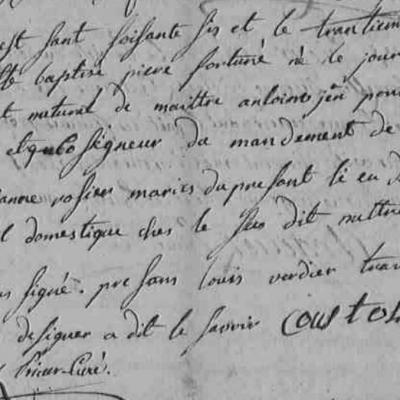 est sant soisante sis et le trantiem
esté baptisé piere fortuné né le jour
et naturel de maittre antoine jen
et quo seigneur du mandement de
anne rosier mariés du present lieu d
l domestique ches le sus dit mettre
us signé. presans louis verdier tra
de signer a dit le savoir coustou
prieur-curé.